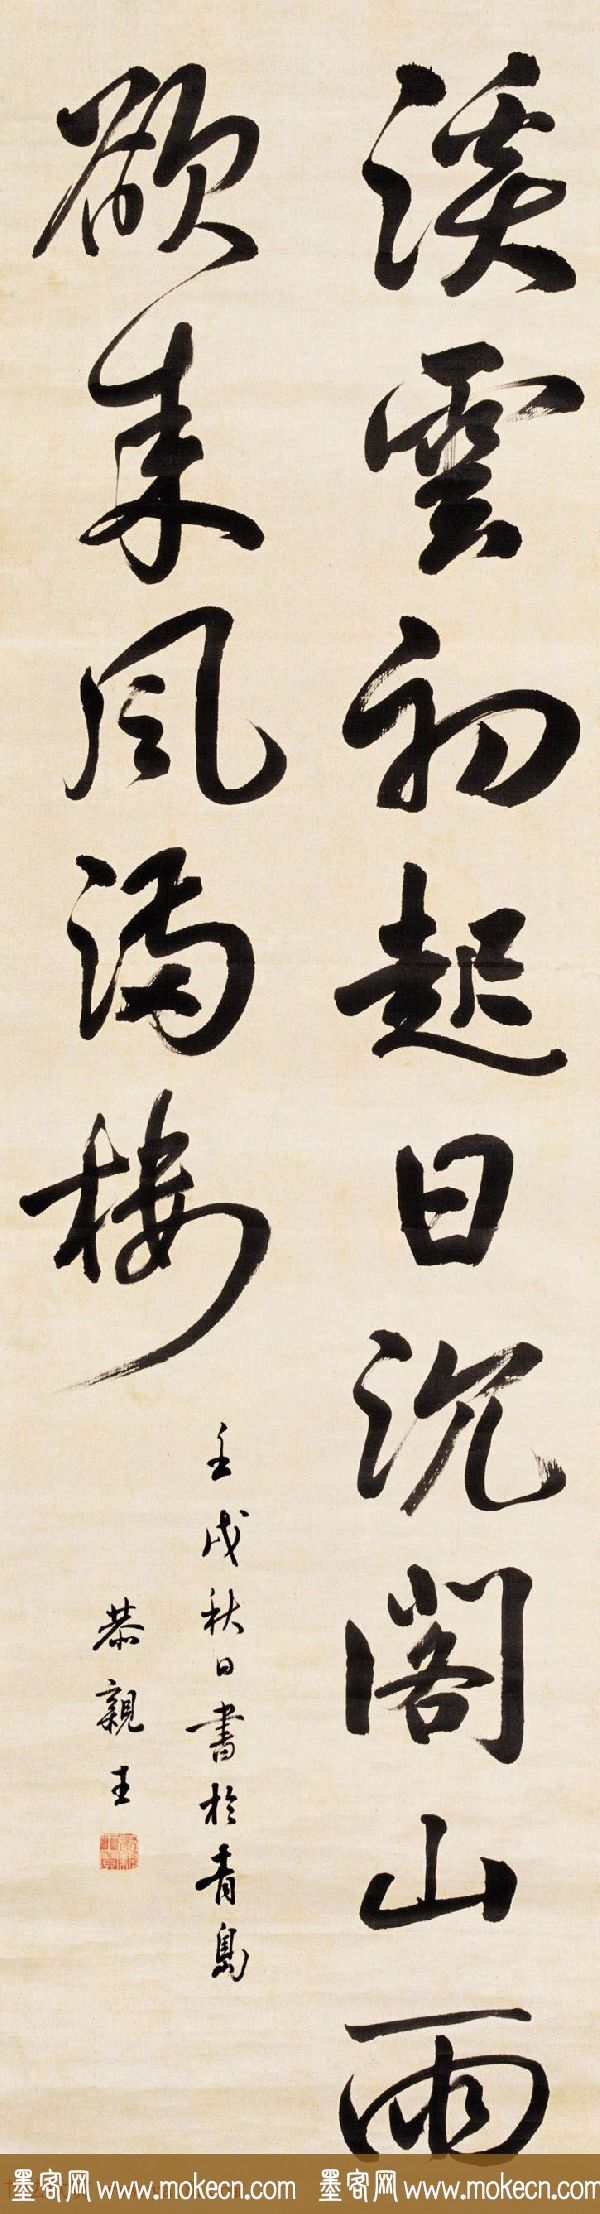 溪雲初起日沉閣山雨
欲来风满楼
壬戌秋日書於青島
恭親王
墨客网 www.mokecn.com 墨客网 www.mokecn.com